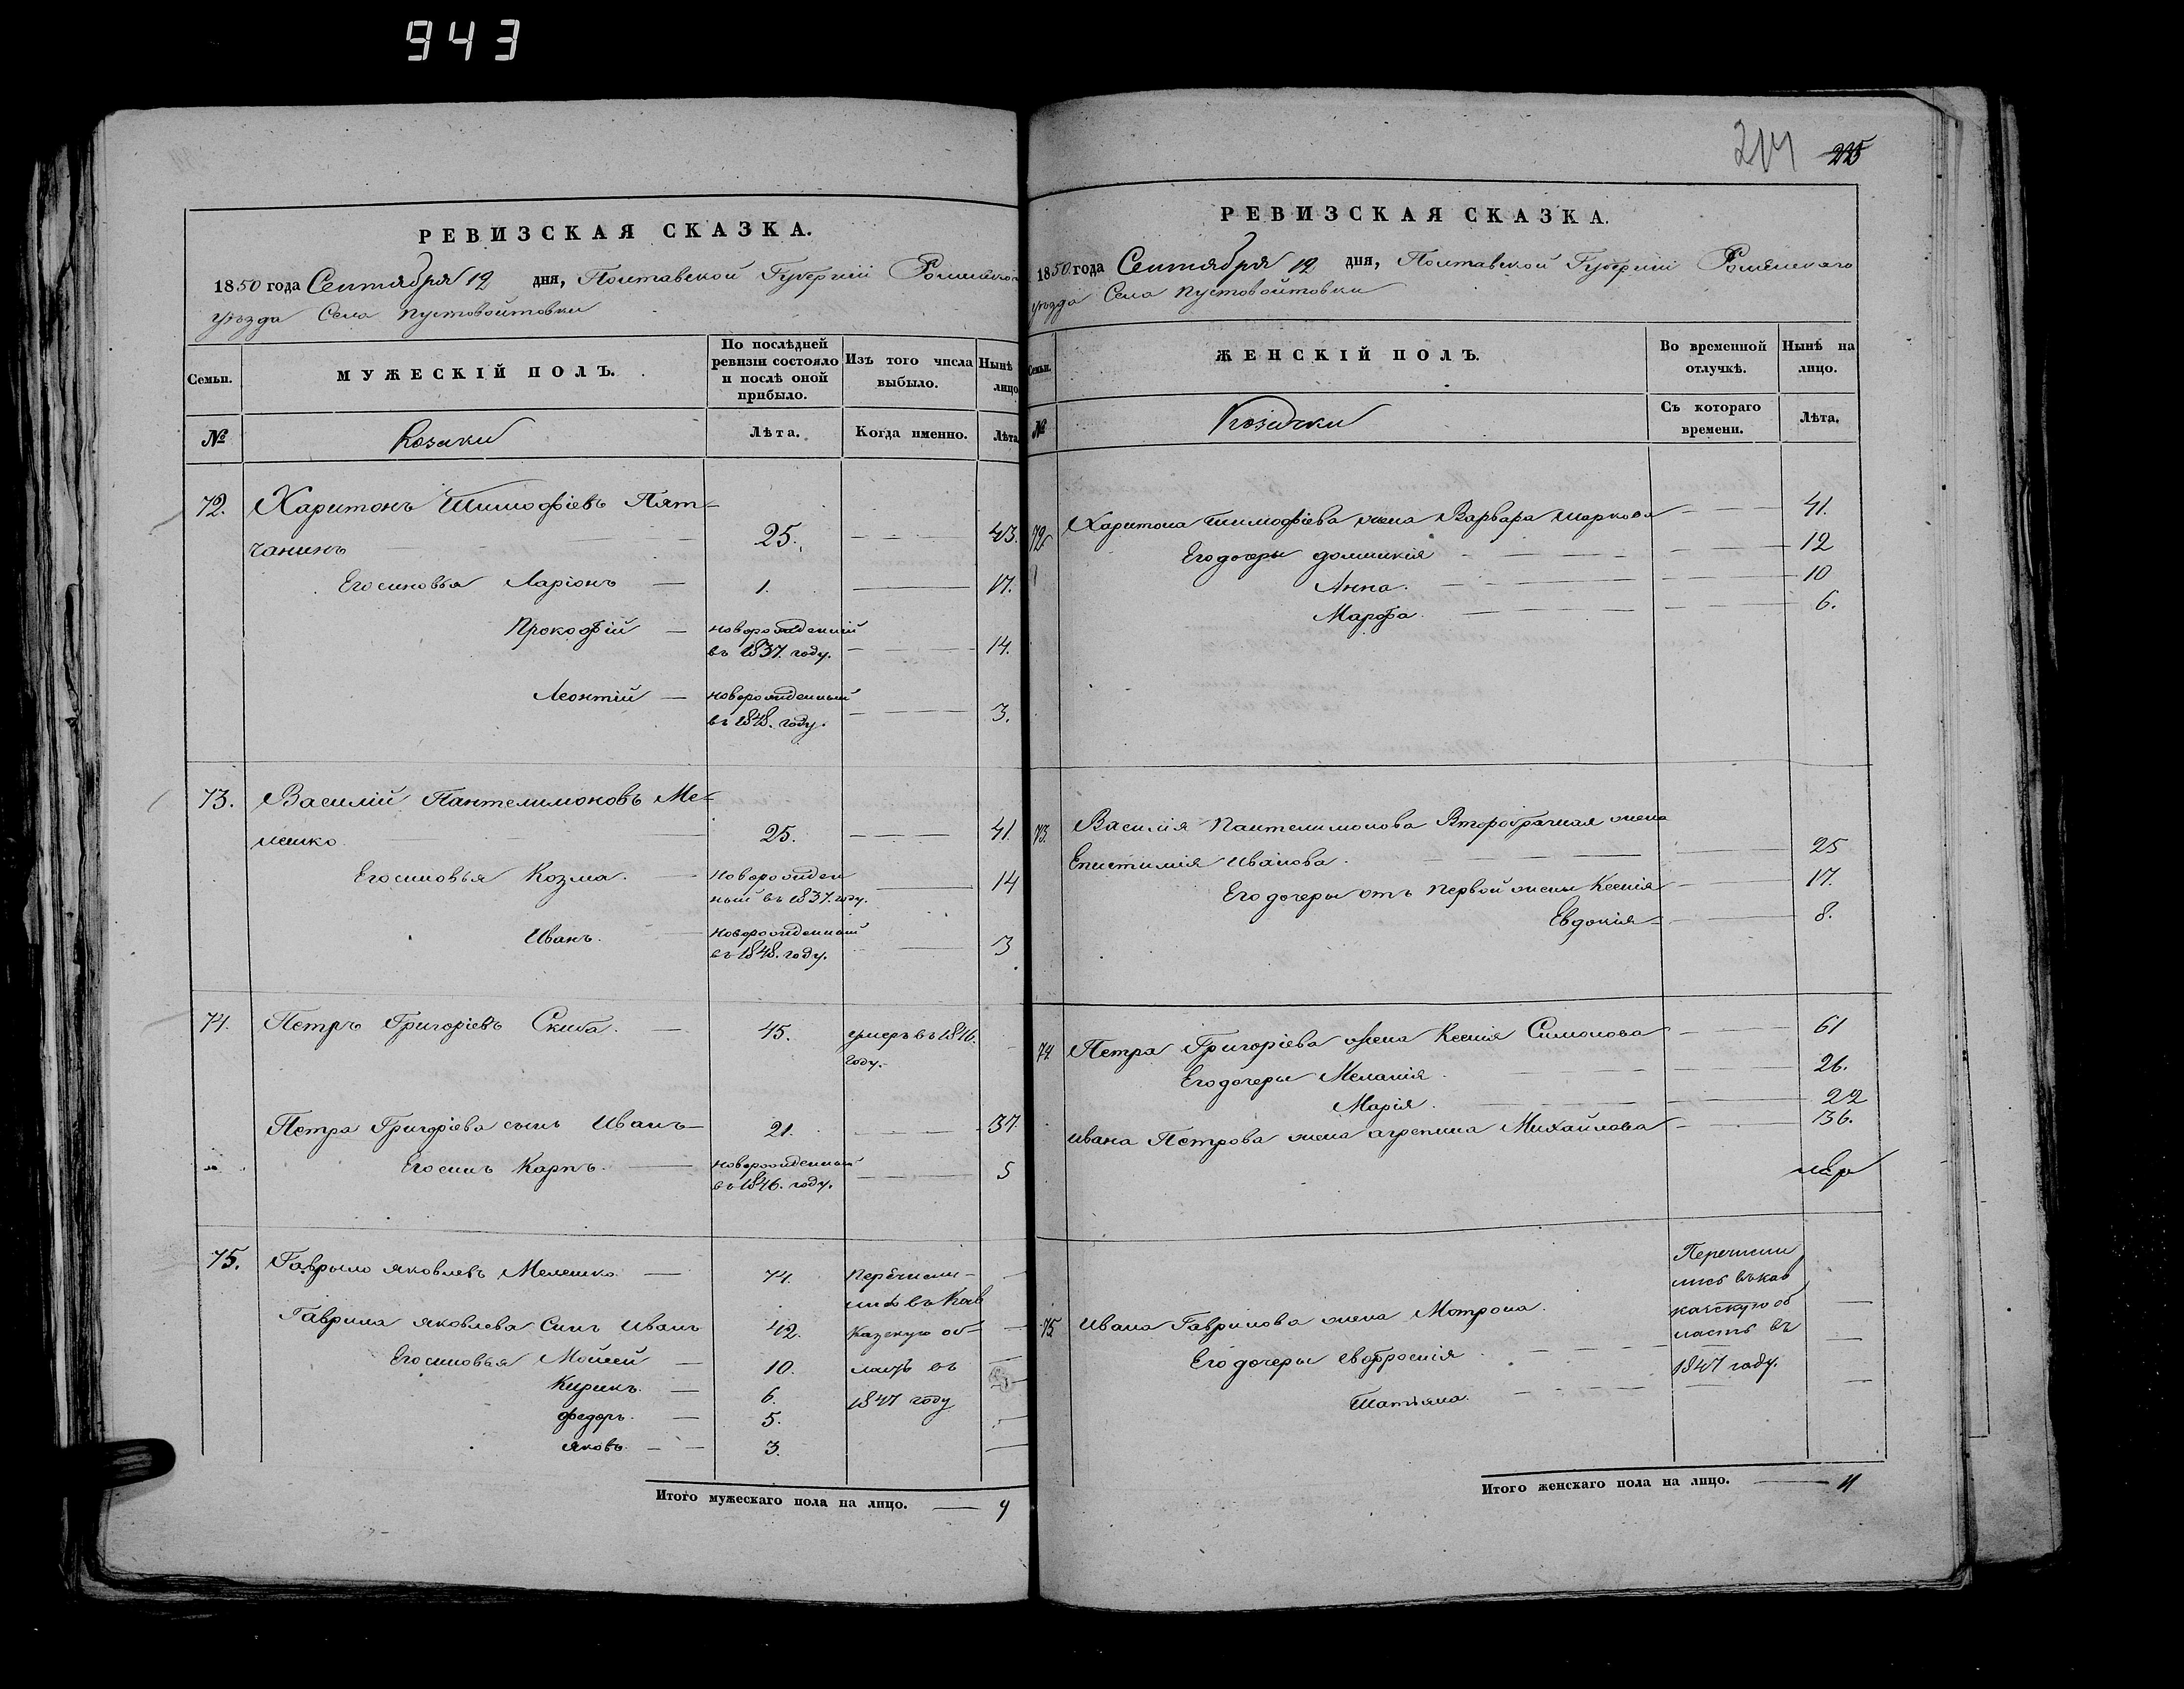 943
РЕВИЗСКАЯ СКАЗКА.
1850 года Сентября 12 дня, Полтавской Губерніи Роменскаго
уѣзда Села Пустовойтовки
Семьи. МУЖЕСКІЙ ПОЛЪ. По послѣдней ревизіи состояло и послѣ оной прибыло. Изъ того числа выбыло. Нынѣ лицо
№ Козаки Лѣта. Когда именно. Лѣта
72. Харитонъ Тимофіевъ Пят-
чанинъ 25. 43.
Его синовья Ларіонъ 1. 17.
Прокофій новорожденній
въ 1837. году. 14.
Леонтій новорожденный
въ 1848. году. 3.
73. Василій Пантелимоновъ Ме-
лешко 25. 41.
Его синовья Козма. новорожден
ный въ 1837. году. 14
Иванъ. новорожденный
въ 1848. году. 3
74. Петръ Григоріевъ Скиба. 45. умеръ въ 1846.
году.
Петра Григоріева сынъ Иванъ 21. 37
Его синъ Карпъ. новорожденный
въ 1846. году. 5
75. Гаврыло Яковлевъ Мелешко 74. Перечисли-
лись въ Кав
Гаврила Яковлева Синъ Иванъ 42. казскую об-
Его синовья Мойсей 10. ласть въ
Кирикъ. 6. 1847 году
Федоръ. 5.
Яковъ. 3.
Итого мужескаго пола на лицо. 9
214 225
РЕВИЗСКАЯ СКАЗКА.
1850 года Сентября 12 дня, Полтавской Губерніи Роменскаго
уѣзда Села Пустовойтовки
Семьи. ЖЕНСКІЙ ПОЛЪ. Во временной отлучкѣ. Нынѣ на лицо.
№ Козачки Съ котораго времени. Лѣта.
72. Харитона Тимофіева жена Варвара Маркова 41.
Его дочеры Домникія 12
Анна. 10
Марфа. 6.
73. Василія Пантелимонова Второбрачная жена
Епистимія Иванова. 25
Его дочеры отъ первой жены Ксенія 17.
Евдокія 8.
74 Петра Григоріева жена Ксенія Симонова 61
Его дочеры Меланія 26.
Марія. 22
Ивана Петрова жена Агрепина Михайлова 36.
Перечисли
лись въ кав
75 Ивана Гаврилова жена Мотрона. казскую об
ласть въ
Его дочеры Евфросенія 1847 году.
Татіяна.
Итого женскаго пола на лицо. 11